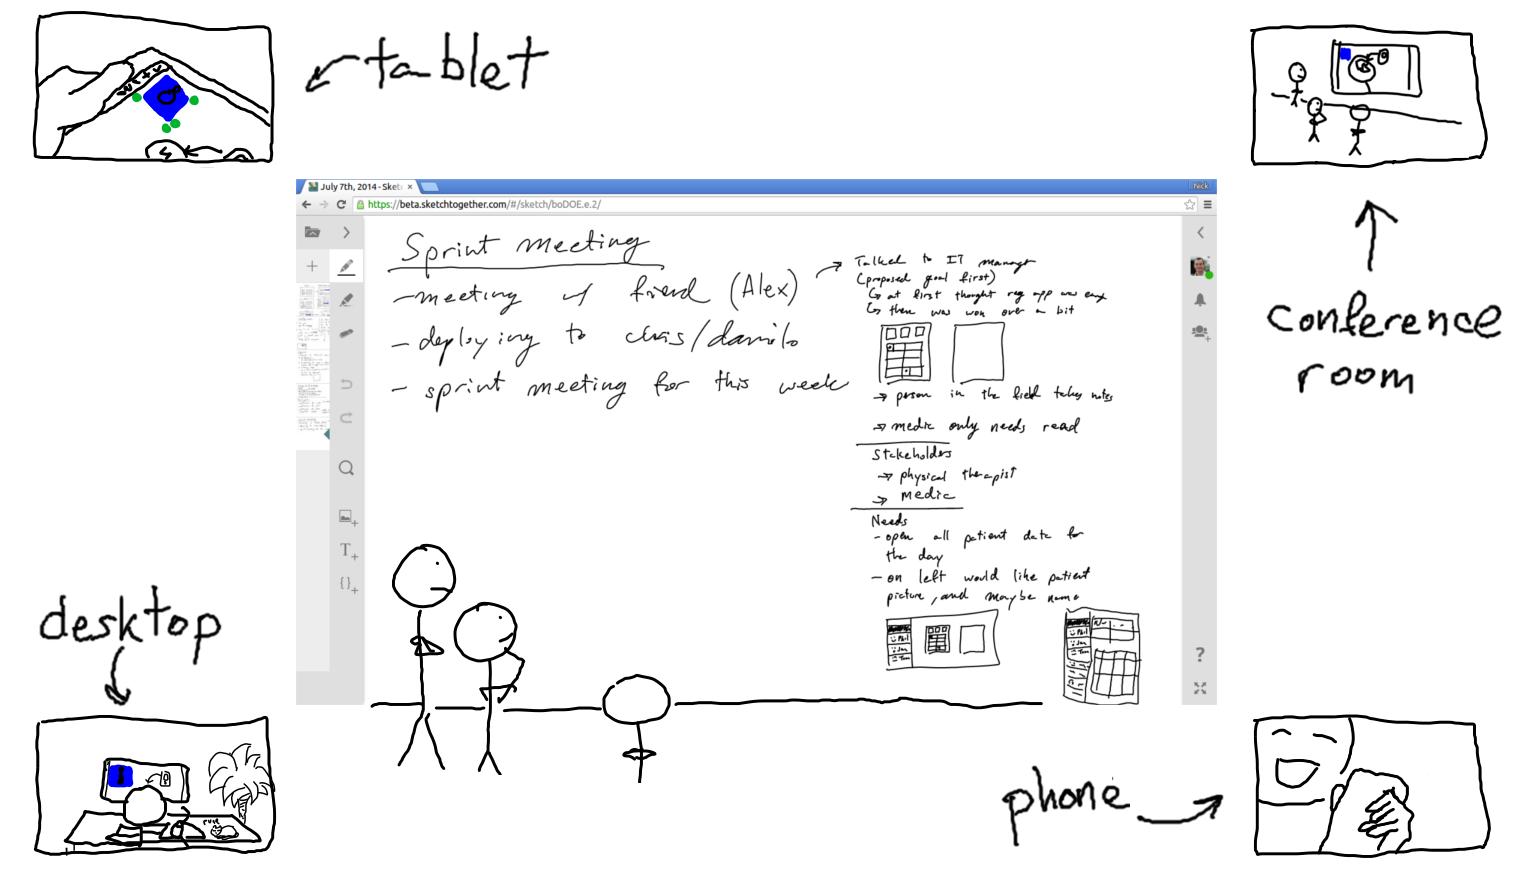 tablet
July 7th, 2014 - Sket
Nick
https://beta.sketchtogether.com/#/sketch/boDOE.e.2/
Sprint meeting
- meeting w/ friend (Alex)
- deploying to chris/danilo
- sprint meeting for this week
Talked to IT manager
(proposed goal first)
at first thought reg app was easy
then was won over a bit
→ person in the field takes notes
→ medic only needs read
Stakeholders
→ physical therapist
→ medic
Needs
- open all patient data for
the day
- on left would like patient
picture, and maybe name
Phil
Jan
Tom
T
{ }
?
conference
room
desktop
phone